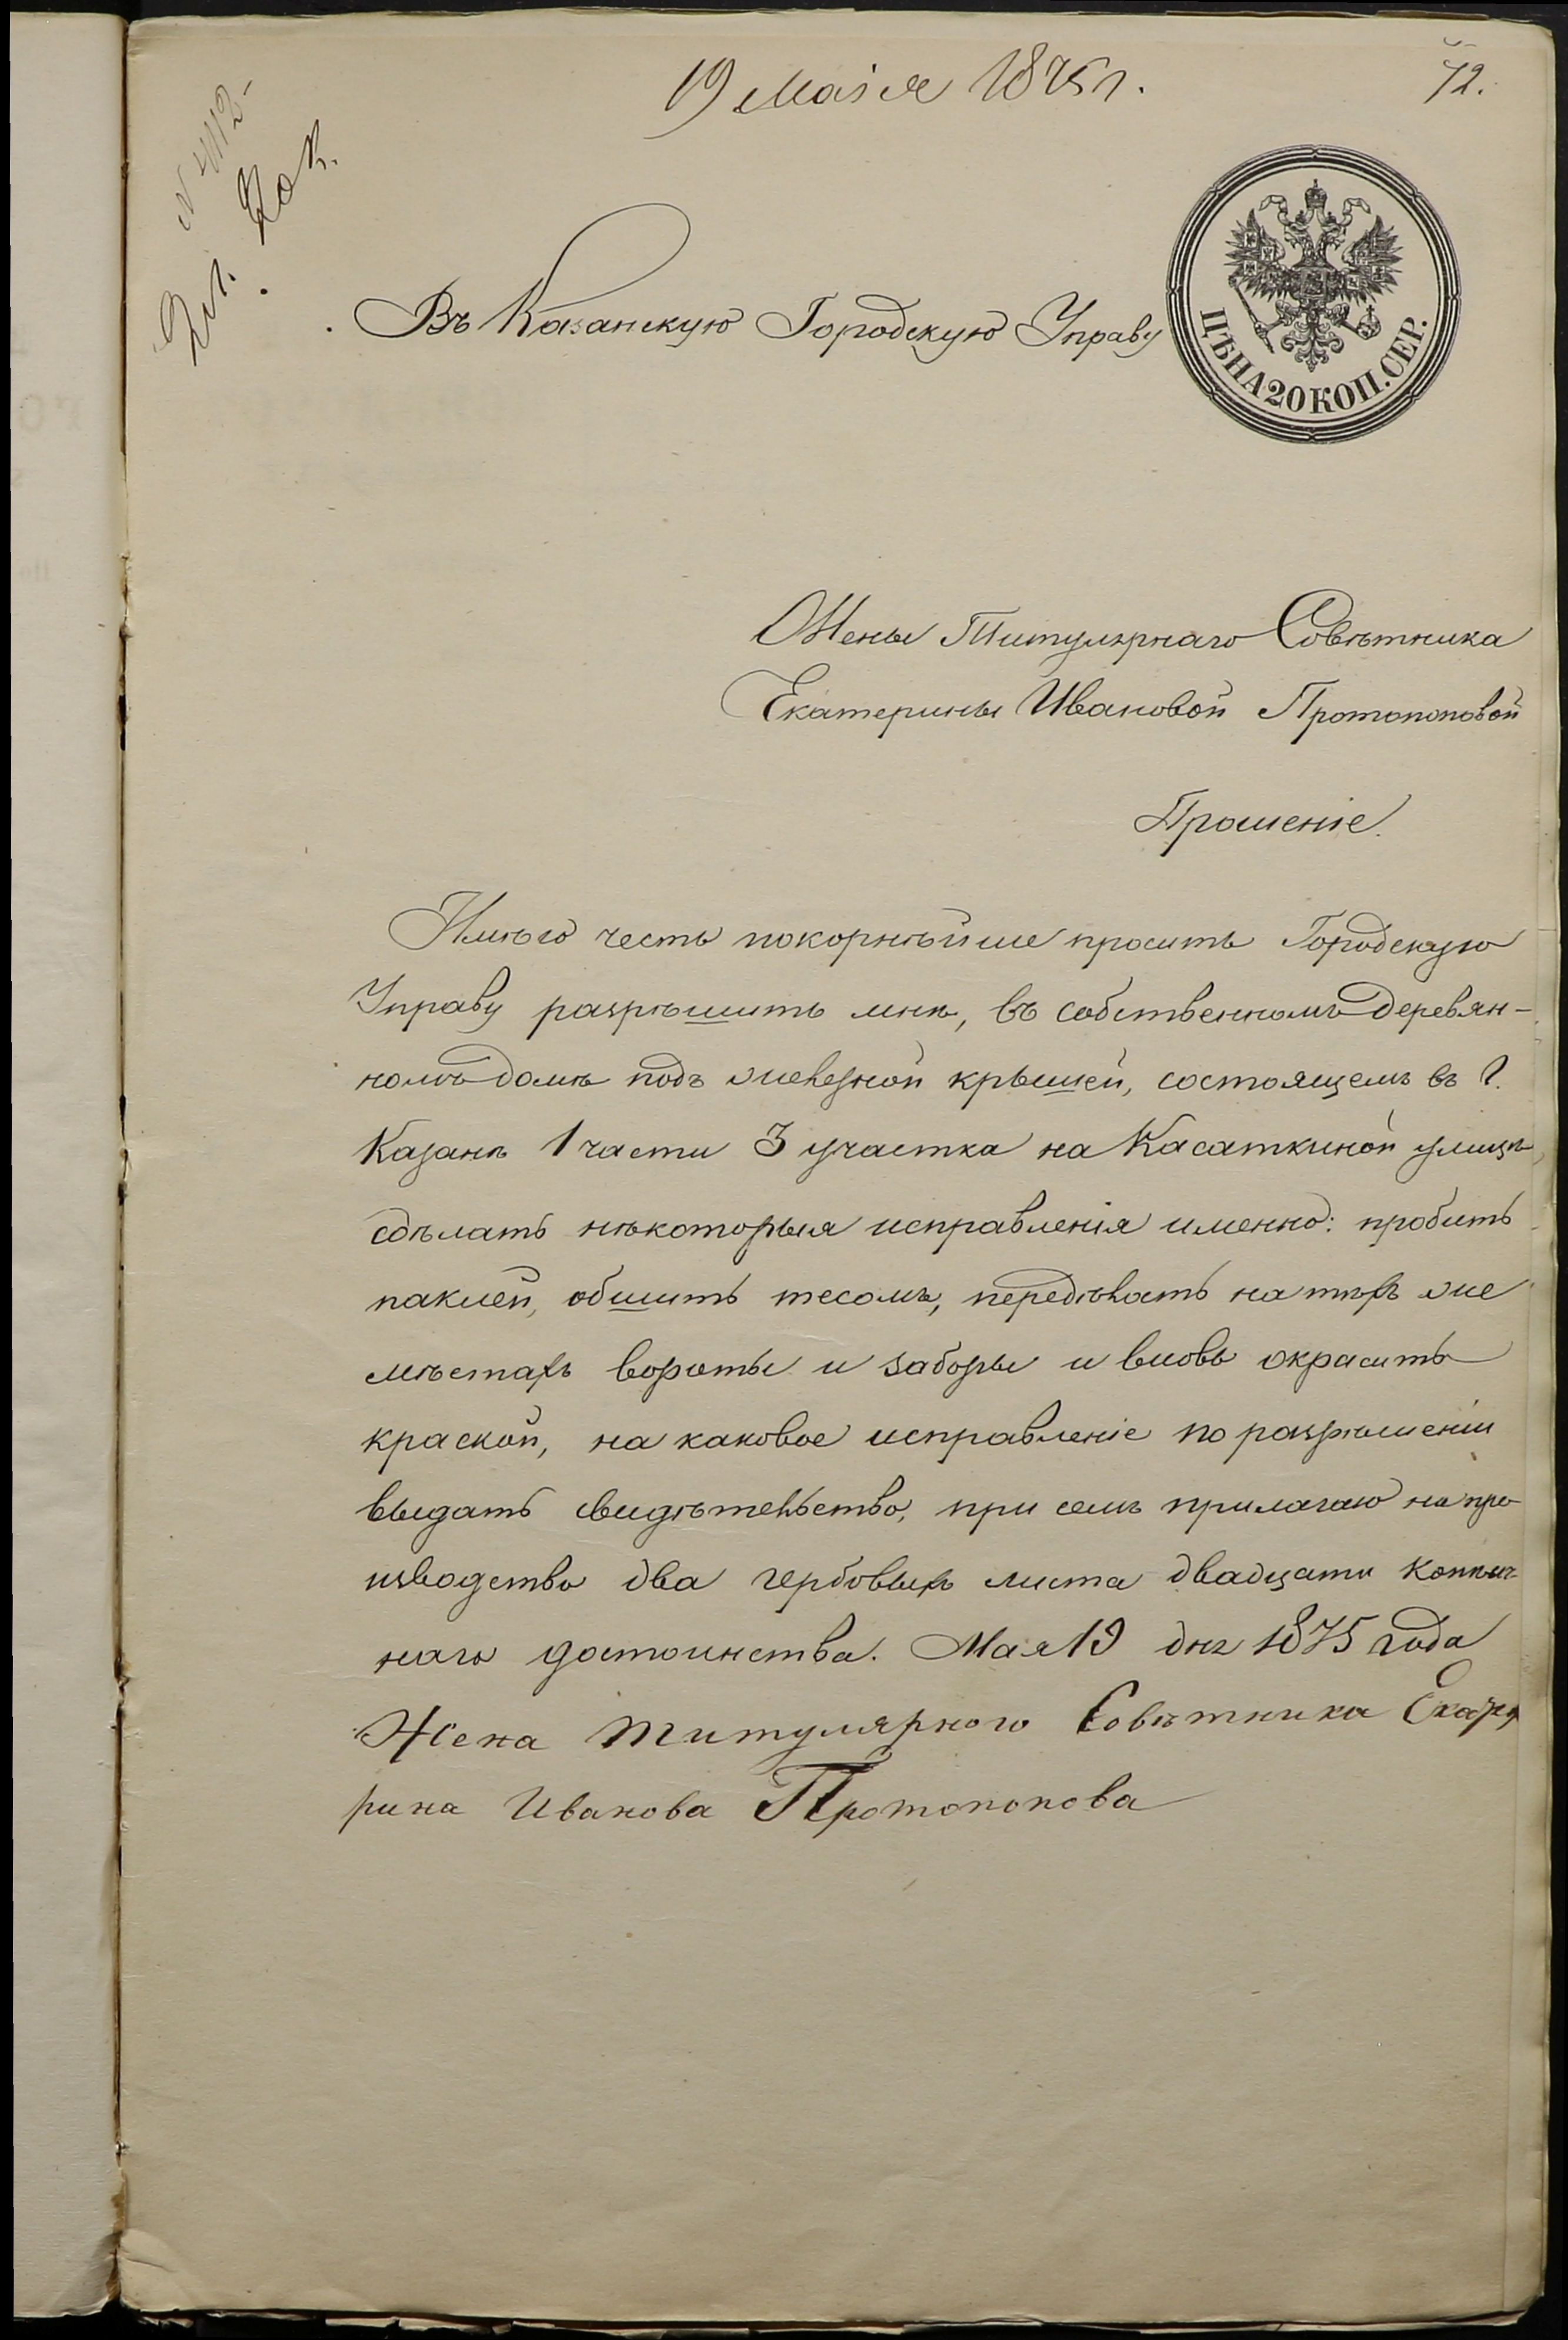 19 Маія 1875 г.
72.
N 4112-
Въ Казанскую Городскую Управу
ЦѢНА 20 КОП. СЕР.
Жены Титулярнаго Совѣтника
Екатерины Ивановой Протопоповой
Прошеніе.
Имѣю честь покорнѣйше просить Городскую
Управу разрѣшить мнѣ, въ собственномъ деревян-
номъ домѣ подъ желѣзной крышей, состоящемъ въ г.
Казанѣ 1 части 3 участка на Касаткиной улицѣ,
сдѣлать нѣкоторыя исправленія именно: пробить
паклей, обшить тесомъ, передѣлать на тѣхъ же
мѣстахъ вороты и заборы и вновь окрасить
краской, на каковое исправленіе по разрѣшеніи
выдать свидѣтельство, при семъ прилагаю на про-
изводство два гербовыхъ листа двадцати копѣеч-
наго достоинства. Мая 19 дня 1875 года
Жена титулярного Совѣтника Екате
рина Иванова Протопопова